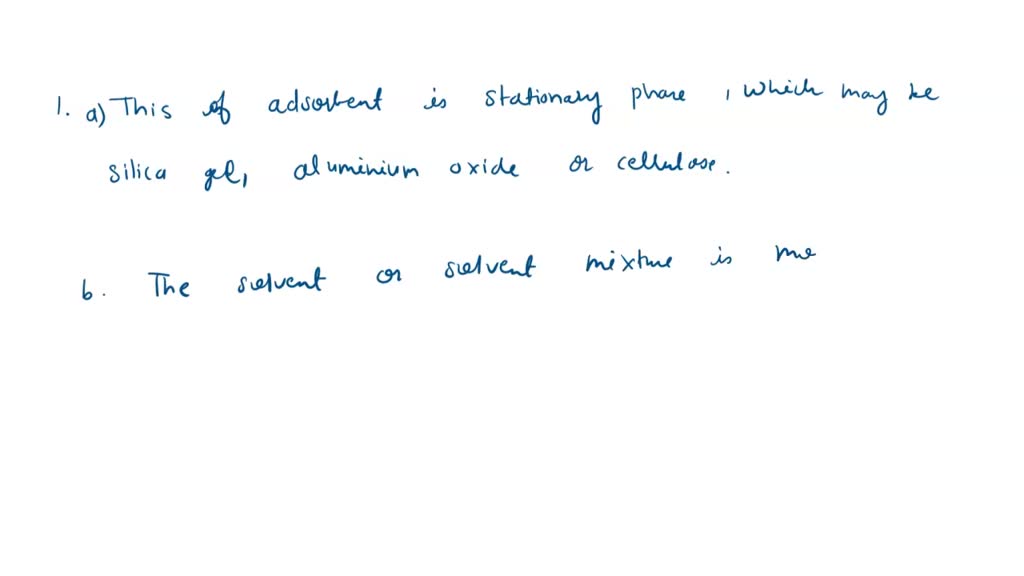 1. a) This of adsorbent is stationary phase, which may be
silica gel, aluminium oxide or cellulose.
b. The solvent or solvent mixture is mo